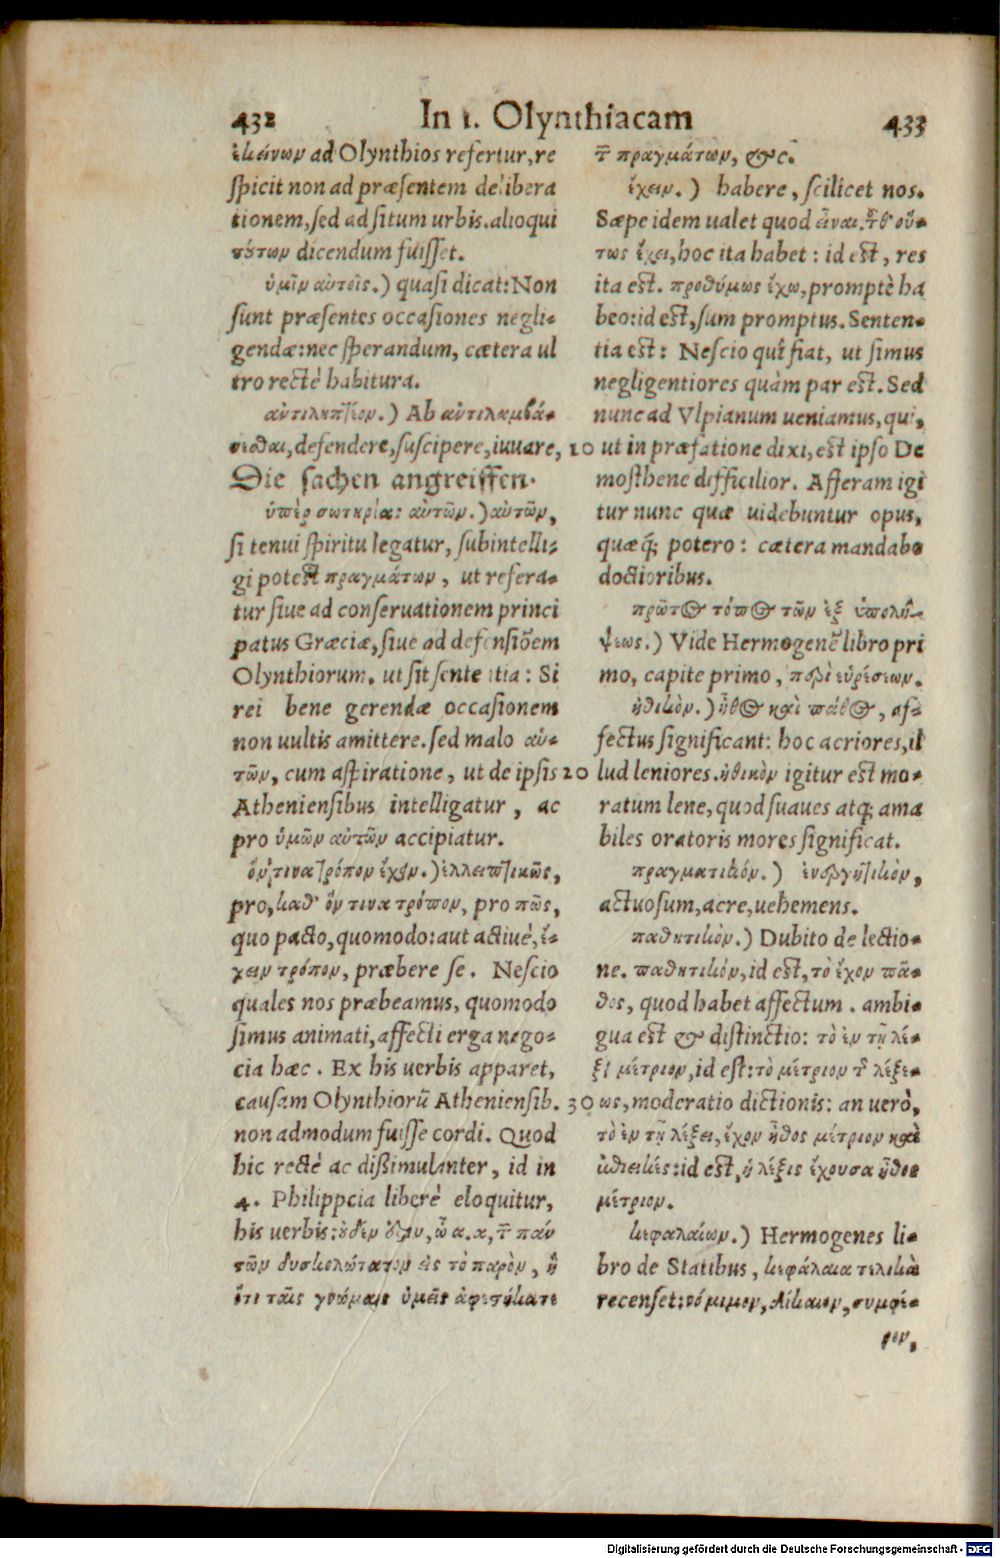 432 In 1. Olynthiacam 433
ἐκείνων ad Olynthios refertur, re
ſpicit non ad præſentem delibera
tionem, ſed ad ſitum urbis. alioqui
τούτων dicendum fuiſſet.
ὑμῖν αὐτοῖς.) quaſi dicat: Non
ſunt præſentes occaſiones negli-
gendæ: nec ſperandum, cætera ul
tro rectè habitura.
ἀντιληπτέον.) Ab ἀντιλαμβά-
νεσθαι, defendere, ſuſcipere, iuuare,
Die sachen angreiffen.
ὑπὲρ σωτηρίας αὐτῶν.) αὐτῶν,
ſi tenui ſpiritu legatur, ſubintelli-
gi poteſt πραγμάτων, ut refera-
tur ſiue ad conſeruationem princi
patus Græciæ, ſiue ad defenſiõem
Olynthiorum. ut ſit ſententia: Si
rei bene gerendæ occaſionem
non uultis amittere. ſed malo αὑ-
τῶν, cum aſpiratione, ut de ipſis
Athenienſibus intelligatur, ac
pro ὑμῶν αὐτῶν accipiatur.
ὅντινα τρόπον ἔχειν.) ἐλλειπτικῶς,
pro, καθ' ὅν τινα τρόπον, pro πῶς,
quo pacto, quomodo: aut actiuè, ἔ-
χειν τρόπον, præbere ſe. Neſcio
quales nos præbeamus, quomodo
ſimus animati, affecti erga nego-
cia hæc. Ex his uerbis apparet,
cauſam Olynthiorũ Athenienſib.
non admodum fuiſſe cordi. Quod
hic rectè ac dißimulanter, id in
4. Philippcia liberè eloquitur,
his uerbis: οὐδὲν ὅλων, ὦ ἄ. ἀ, τ͂ πάν
των δυσκολώτατον εἰς τὸ παρὸν, ἢ
ὅτι ταῖς γνώμαις ὑμεῖς ἀφεστήκατε
τ͂ πραγμάτων, &c.
ἔχειν.) habere, ſcilicet nos.
Sæpe idem ualet quod εἶναι. τὸ οὕ-
τως ἔχει, hoc ita habet: id eſt, res
ita eſt. προθύμως ἔχω, promptè ha
beo: id eſt, ſum promptus. Senten-
tia eſt: Neſcio quî fiat, ut ſimus
negligentiores quàm par eſt. Sed
nunc ad Vlpianum ueniamus, qui,
10 ut in præfatione dixi, eſt ipſo De
moſthene difficilior. Afferam igi
tur nunc quæ uidebuntur opus,
quæq́; potero: cætera mandabo
doctioribus.
πρῶτος τόπος τῶν ἐξ ὑπολή-
ψεως.) Vide Hermogenẽ libro pri
mo, capite primo, περὶ εὑρέσεων.
ἠθικὸν.) ἦθος καὶ πάθος, af-
fectus ſignificant: hoc acriores, il
20 lud leniores. ἠθικὸν igitur eſt mo-
ratum lene, quod ſuaues atq; ama
biles oratoris mores ſignificat.
πραγματικόν.) ἐνεργητικὸν,
actuoſum, acre, uehemens.
παθητικὸν.) Dubito de lectio-
ne. παθητικόν, id eſt, τὸ ἔχον πά-
θος, quod habet affectum. ambi-
gua eſt & diſtinctio: τὸ ἐν τῇ λέ-
ξει μέτριον, id eſt: τὸ μέτριον τ͂ λέξε-
30 ως, moderatio dictionis: an uerò,
τὸ ἐν τῇ λέξει, ἔχον ἦθος μέτριον καὶ
ἐπιεικές: id eſt, ἡ λέξις ἔχουσα ἦθος
μέτριον.
κεφαλαίων.) Hermogenes li-
bro de Statibus, κεφάλαια τελικὰ
recenſet: νόμιμον, δίκαιον, συμφέ-
ρον,
Digitalisierung gefördert durch die Deutsche Forschungsgemeinschaft - DFG